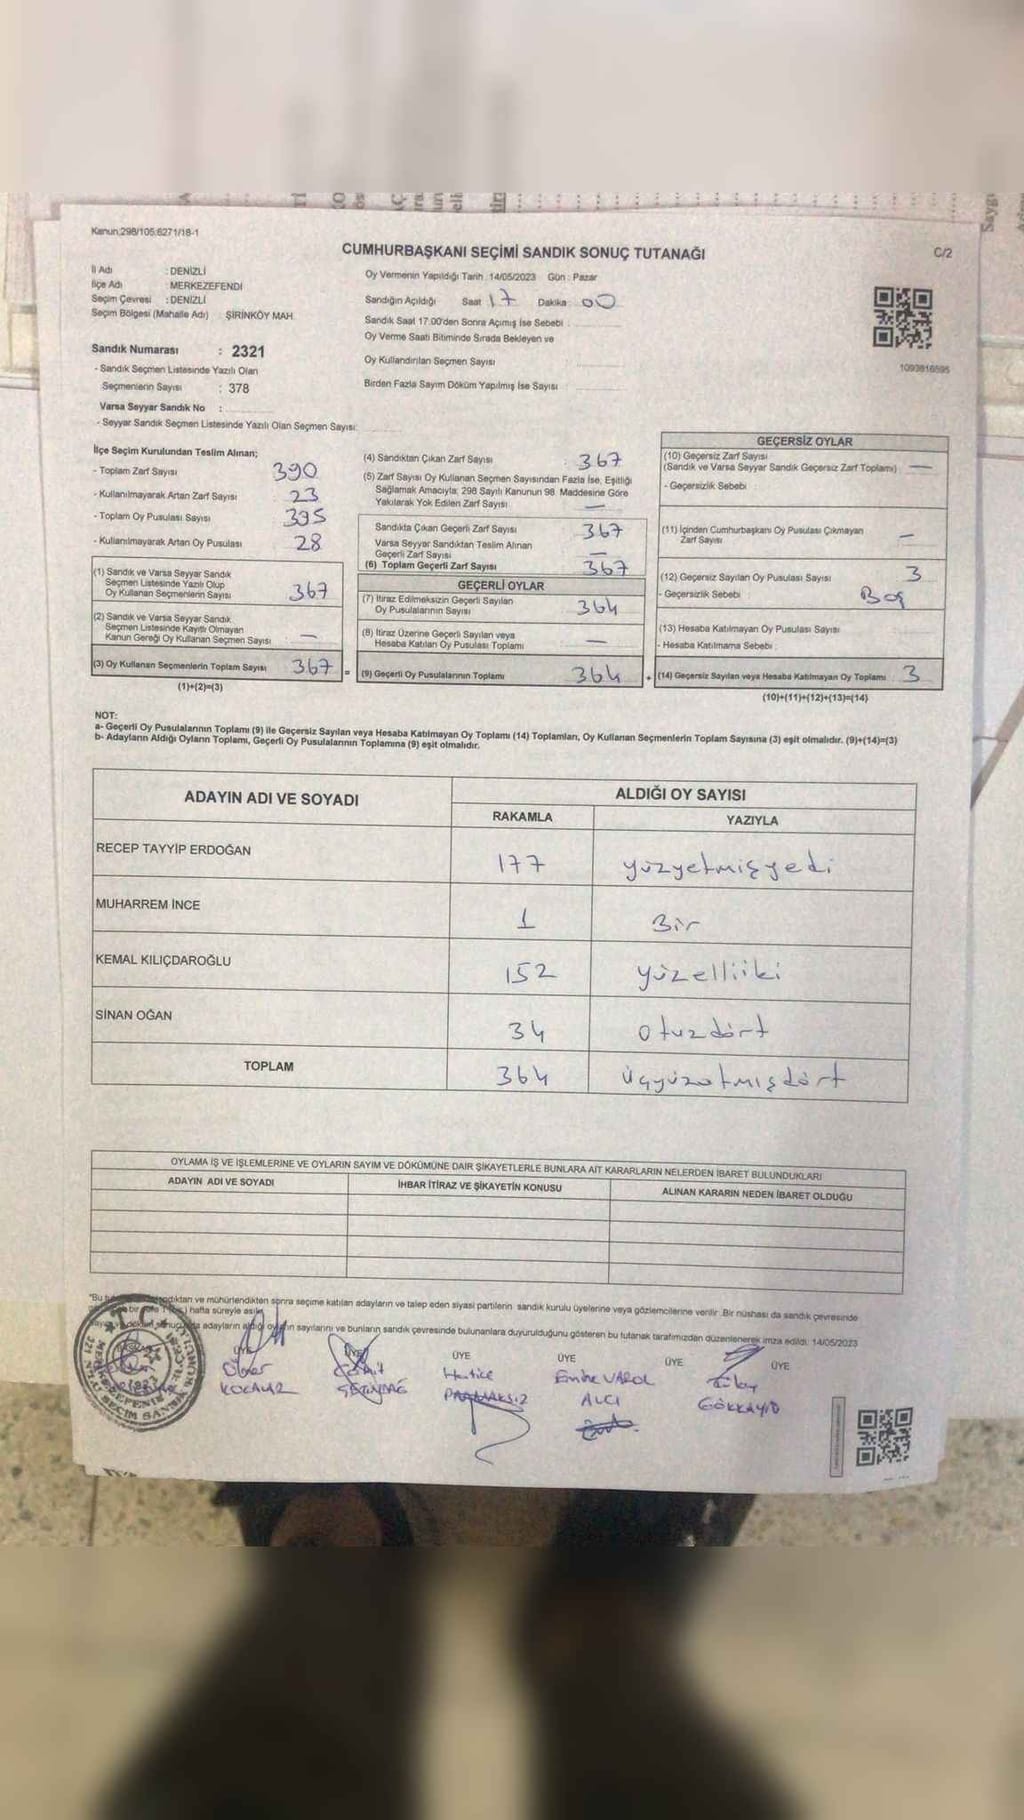 Kanun:298/105;6271/18-1
CUMHURBAŞKANI SEÇİMİ SANDIK SONUÇ TUTANAĞI
C/2
İl Adı : DENİZLİ
İlçe Adı : MERKEZEFENDİ
Seçim Çevresi : DENİZLİ
Seçim Bölgesi (Mahalle Adı) : ŞİRİNKÖY MAH.
Sandık Numarası : 2321
- Sandık Seçmen Listesinde Yazılı Olan
Seçmenlerin Sayısı : 378
Varsa Seyyar Sandık No :
- Seyyar Sandık Seçmen Listesinde Yazılı Olan Seçmen Sayısı:
Oy Vermenin Yapıldığı Tarih : 14/05/2023 Gün : Pazar
Sandığın Açıldığı Saat 17 Dakika : 00
Sandık Saat 17:00'den Sonra Açılmış İse Sebebi :
Oy Verme Saati Bitiminde Sırada Bekleyen ve
Oy Kullandırılan Seçmen Sayısı :
Birden Fazla Sayım Döküm Yapılmış İse Sayısı :
1093816595
İlçe Seçim Kurulundan Teslim Alınan;
- Toplam Zarf Sayısı 390
- Kullanılmayarak Artan Zarf Sayısı 23
- Toplam Oy Pusulası Sayısı 395
- Kullanılmayarak Artan Oy Pusulası 28
(1) Sandık ve Varsa Seyyar Sandık
Seçmen Listesinde Yazılı Olup
Oy Kullanan Seçmenlerin Sayısı 367
(2) Sandık ve Varsa Seyyar Sandık
Seçmen Listesinde Kayıtlı Olmayan
Kanun Gereği Oy Kullanan Seçmen Sayısı —
(3) Oy Kullanan Seçmenlerin Toplam Sayısı 367 =
(1)+(2)=(3)
(4) Sandıktan Çıkan Zarf Sayısı : 367
(5) Zarf Sayısı Oy Kullanan Seçmen Sayısından Fazla İse, Eşitliği
Sağlamak Amacıyla; 298 Sayılı Kanunun 98. Maddesine Göre
Yakılarak Yok Edilen Zarf Sayısı —
Sandıkta Çıkan Geçerli Zarf Sayısı 367
Varsa Seyyar Sandıktan Teslim Alınan
Geçerli Zarf Sayısı —
(6) Toplam Geçerli Zarf Sayısı 367
GEÇERLİ OYLAR
(7) İtiraz Edilmeksizin Geçerli Sayılan
Oy Pusulalarının Sayısı 364
(8) İtiraz Üzerine Geçerli Sayılan veya
Hesaba Katılan Oy Pusulası Toplamı —
(9) Geçerli Oy Pusulalarının Toplamı 364 +
GEÇERSİZ OYLAR
(10) Geçersiz Zarf Sayısı
(Sandık ve Varsa Seyyar Sandık Geçersiz Zarf Toplamı) —
- Geçersizlik Sebebi :
(11) İçinden Cumhurbaşkanı Oy Pusulası Çıkmayan
Zarf Sayısı —
(12) Geçersiz Sayılan Oy Pusulası Sayısı 3
- Geçersizlik Sebebi : Boş
(13) Hesaba Katılmayan Oy Pusulası Sayısı
- Hesaba Katılmama Sebebi :
(14) Geçersiz Sayılan veya Hesaba Katılmayan Oy Toplamı 3
(10)+(11)+(12)+(13)=(14)
NOT:
a- Geçerli Oy Pusulalarının Toplamı (9) ile Geçersiz Sayılan veya Hesaba Katılmayan Oy Toplamı (14) Toplamları, Oy Kullanan Seçmenlerin Toplam Sayısına (3) eşit olmalıdır. (9)+(14)=(3)
b- Adayların Aldığı Oyların Toplamı, Geçerli Oy Pusulalarının Toplamına (9) eşit olmalıdır.
ADAYIN ADI VE SOYADI
ALDIĞI OY SAYISI
RAKAMLA YAZIYLA
RECEP TAYYİP ERDOĞAN 177 yüzyetmişyedi
MUHARREM İNCE 1 Bir
KEMAL KILIÇDAROĞLU 152 yüzelliiki
SİNAN OĞAN 34 otuzdört
TOPLAM 364 üçyüzatmışdört
OYLAMA İŞ VE İŞLEMLERİNE VE OYLARIN SAYIM VE DÖKÜMÜNE DAİR ŞİKAYETLERLE BUNLARA AİT KARARLARIN NELERDEN İBARET BULUNDUKLARI
ADAYIN ADI VE SOYADI İHBAR İTİRAZ VE ŞİKAYETİN KONUSU ALINAN KARARIN NEDEN İBARET OLDUĞU
"Bu tutanak sandıktan ve mühürlendikten sonra seçime katılan adayların ve talep eden siyasi partilerin sandık kurulu üyelerine veya gözlemcilerine verilir. Bir nüshası da sandık çevresinde
bir hafta süreyle asılır.
adayların aldığı oyların sayılarını ve bunların sandık çevresinde bulunanlara duyurulduğunu gösteren bu tutanak tarafımızdan düzenlenerek imza edildi. 14/05/2023
ÜYE ÜYE ÜYE ÜYE ÜYE
Hatice Emine VAROL
ALCI
GÖKKAYID
T.C.